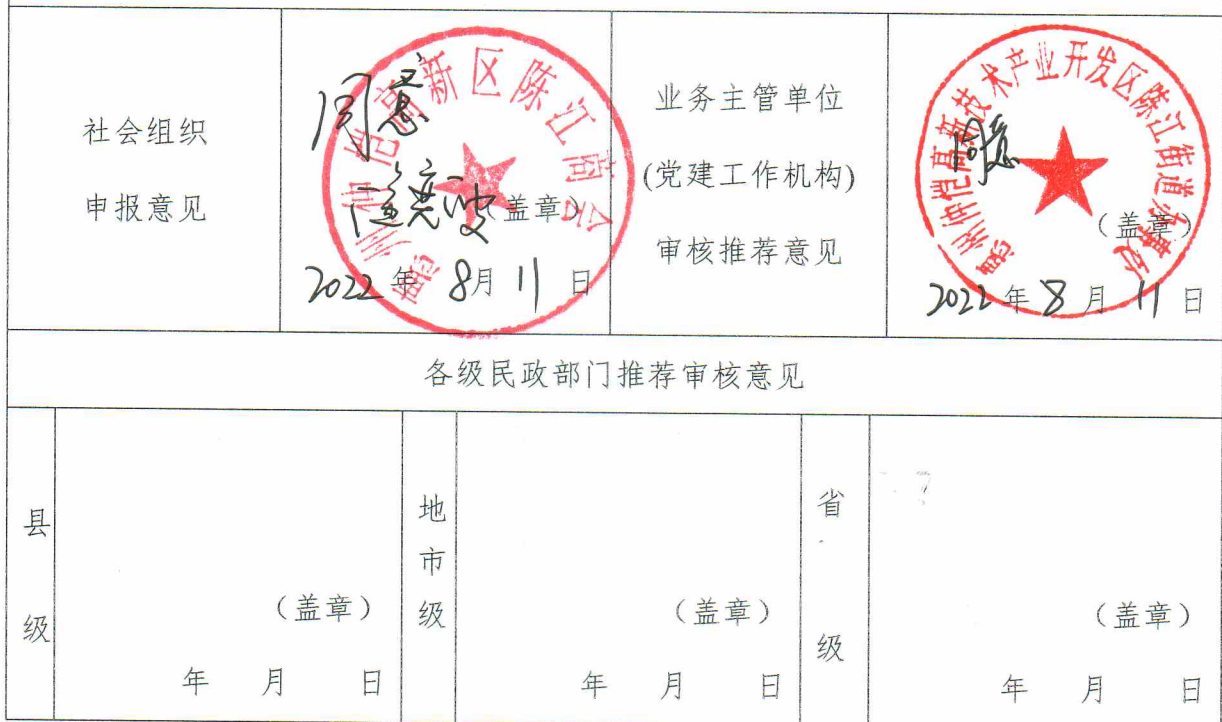 社会组织
申报意见
惠州仲恺高新区陈江商会
同意
(盖章)
2022年8月11日
业务主管单位
(党建工作机构)
审核推荐意见
惠州仲恺高新技术产业开发区陈江街道办事处
同意
(盖章)
2022年8月11日
各级民政部门推荐审核意见
县级
(盖章)
年 月 日
地市级
(盖章)
年 月 日
省级
(盖章)
年 月 日